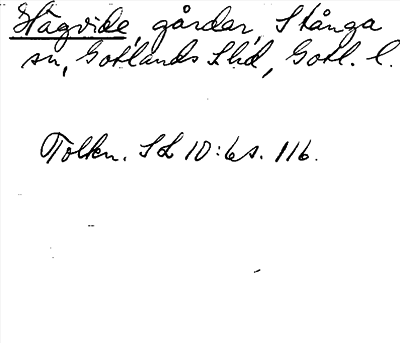 Hägvide, gårdar, Stånga
sn, Gotlands S hd, Gotl. l.
Tolkn. SL 10:6 s. 116.